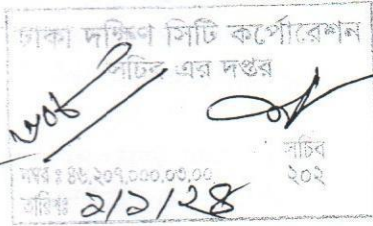 ঢাকা দক্ষিণ সিটি কর্পোরেশন
সচিব এর দপ্তর
সচিব
নম্বর : ৪৬.২০৭.০০০.০৩.০০
২০২
তারিখঃ ২/১/২৪